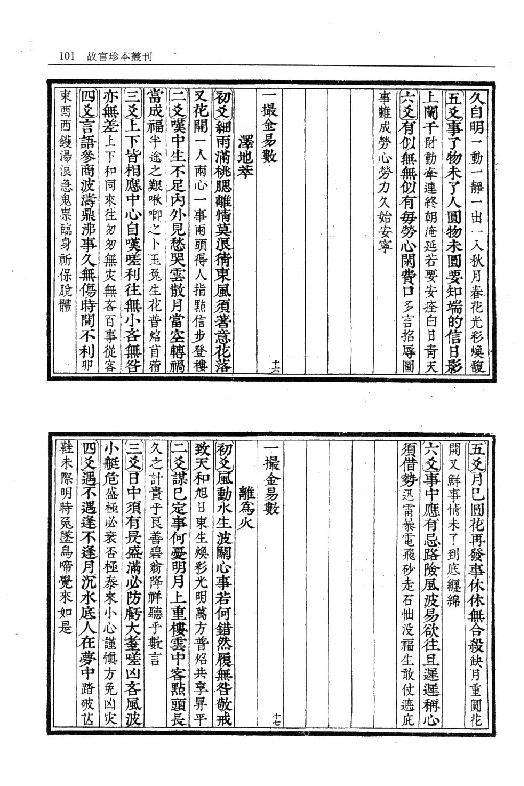 101 故宮珍本叢刊
久自明一動一靜一出一入秋月春花光彩煥馥
五爻事了物未了人圓物未圓要知端的信日影
上闌干附動牽連終朝淹延若要安座白日青天
六爻有似無無似有毋勞心閑費口多言招辱圖
事難成勞心勞力久始安寧
一撮金易數
十六
澤地萃
初爻細雨滿桃腮離情莫浪猜東風須著意花落
又花開一人兩心一事兩頭得人指點信步登樓
二爻嘆中生不足內外見愁哭雲散月當空轉禍
當成福半途之艱啾唧之卜玉兔生花普焰首宿
三爻上下皆相應中心自嘆嗟利往無小吝無咎
亦無差上下和同來往匆匆無災無害百事從容
四爻言語參商波濤鼎沸事久無傷時間不利卯
東酉西鑊湯滾急鬼祟臨身祈保脫體
五爻月已圓花再發事休休無合殺缺月重圓花
開又鮮事情未了到底纏綿
六爻事中應有忌路險風波易欲往且遲遲稱心
須借勢迅雷暴電飛砂走石怕沒福生敢仗遮庇
一撮金易數
十七
離為火
初爻風動水生波關心事若何錯然履無咎敬戒
致天和旭日東生煥彩光明萬方普焰共享昇平
二爻謀已定事何憂明月上重樓雲中客點頭長
久之計貴于良善碧翁降祥聽乎數言
三爻日中須有昃盛滿必防虧大耋嗟凶客風波
小艇危盛極必衰否極泰來小心謹慎方免凶灾
四爻遇不遇逢不逢月沉水底人在夢中踏破芒
鞋未際明時兎墜烏啼覺來如是